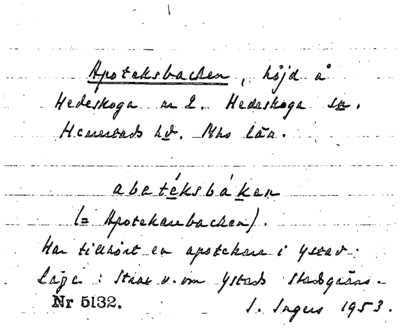 Apoteksbacken, höjd å
Hedeskoga nr 2. Hedeskoga sn.
Herrestads hd. Mhs län.
abetéksbáken
(= Apotekarebacken).
Har tillhört en apotekare i Ystad.
Läge: Strax v. om Ystads stadsgräns.
Nr 5132.
I. Ingers 1953.